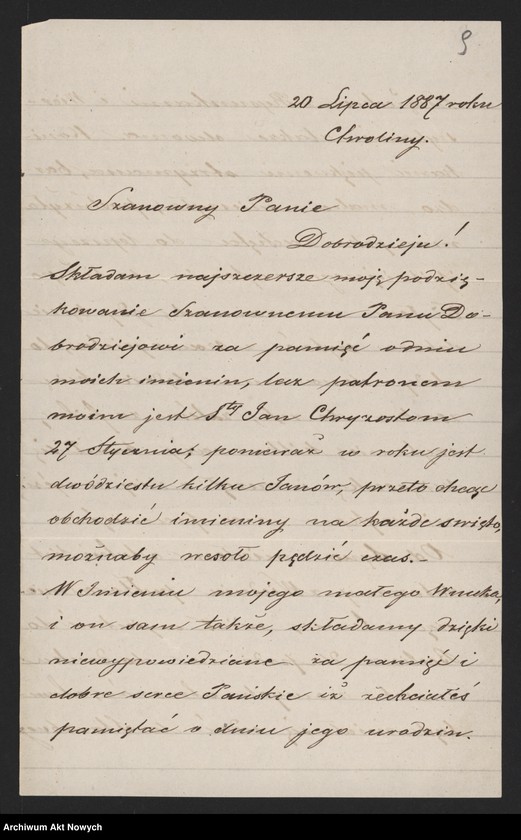 9
20 Lipca 1887 roku
Chroliny.
Szanowny Panie
Dobrodzieju!
Składam najszczersze moje podzię-
kowanie Szanownemu Panu Do-
brodziejowi za pamięć o dniu
moich imienin, lecz patronem
moim jest Sty Jan Chryzostom
27 Stycznia; ponieważ w roku jest
dwódziestu kilku Janów, przeto chcąc
obchodzić imieniny na każde święto,
możnaby wesoło pędzić czas.-
W Imieniu mojego małego Wnuka,
i on sam także, składamy dzięki
niewypowiedziane za pamięć i
dobre serce Pańskie iż zechciałeś
pamiętać o dniu jego urodzin.
Archiwum Akt Nowych